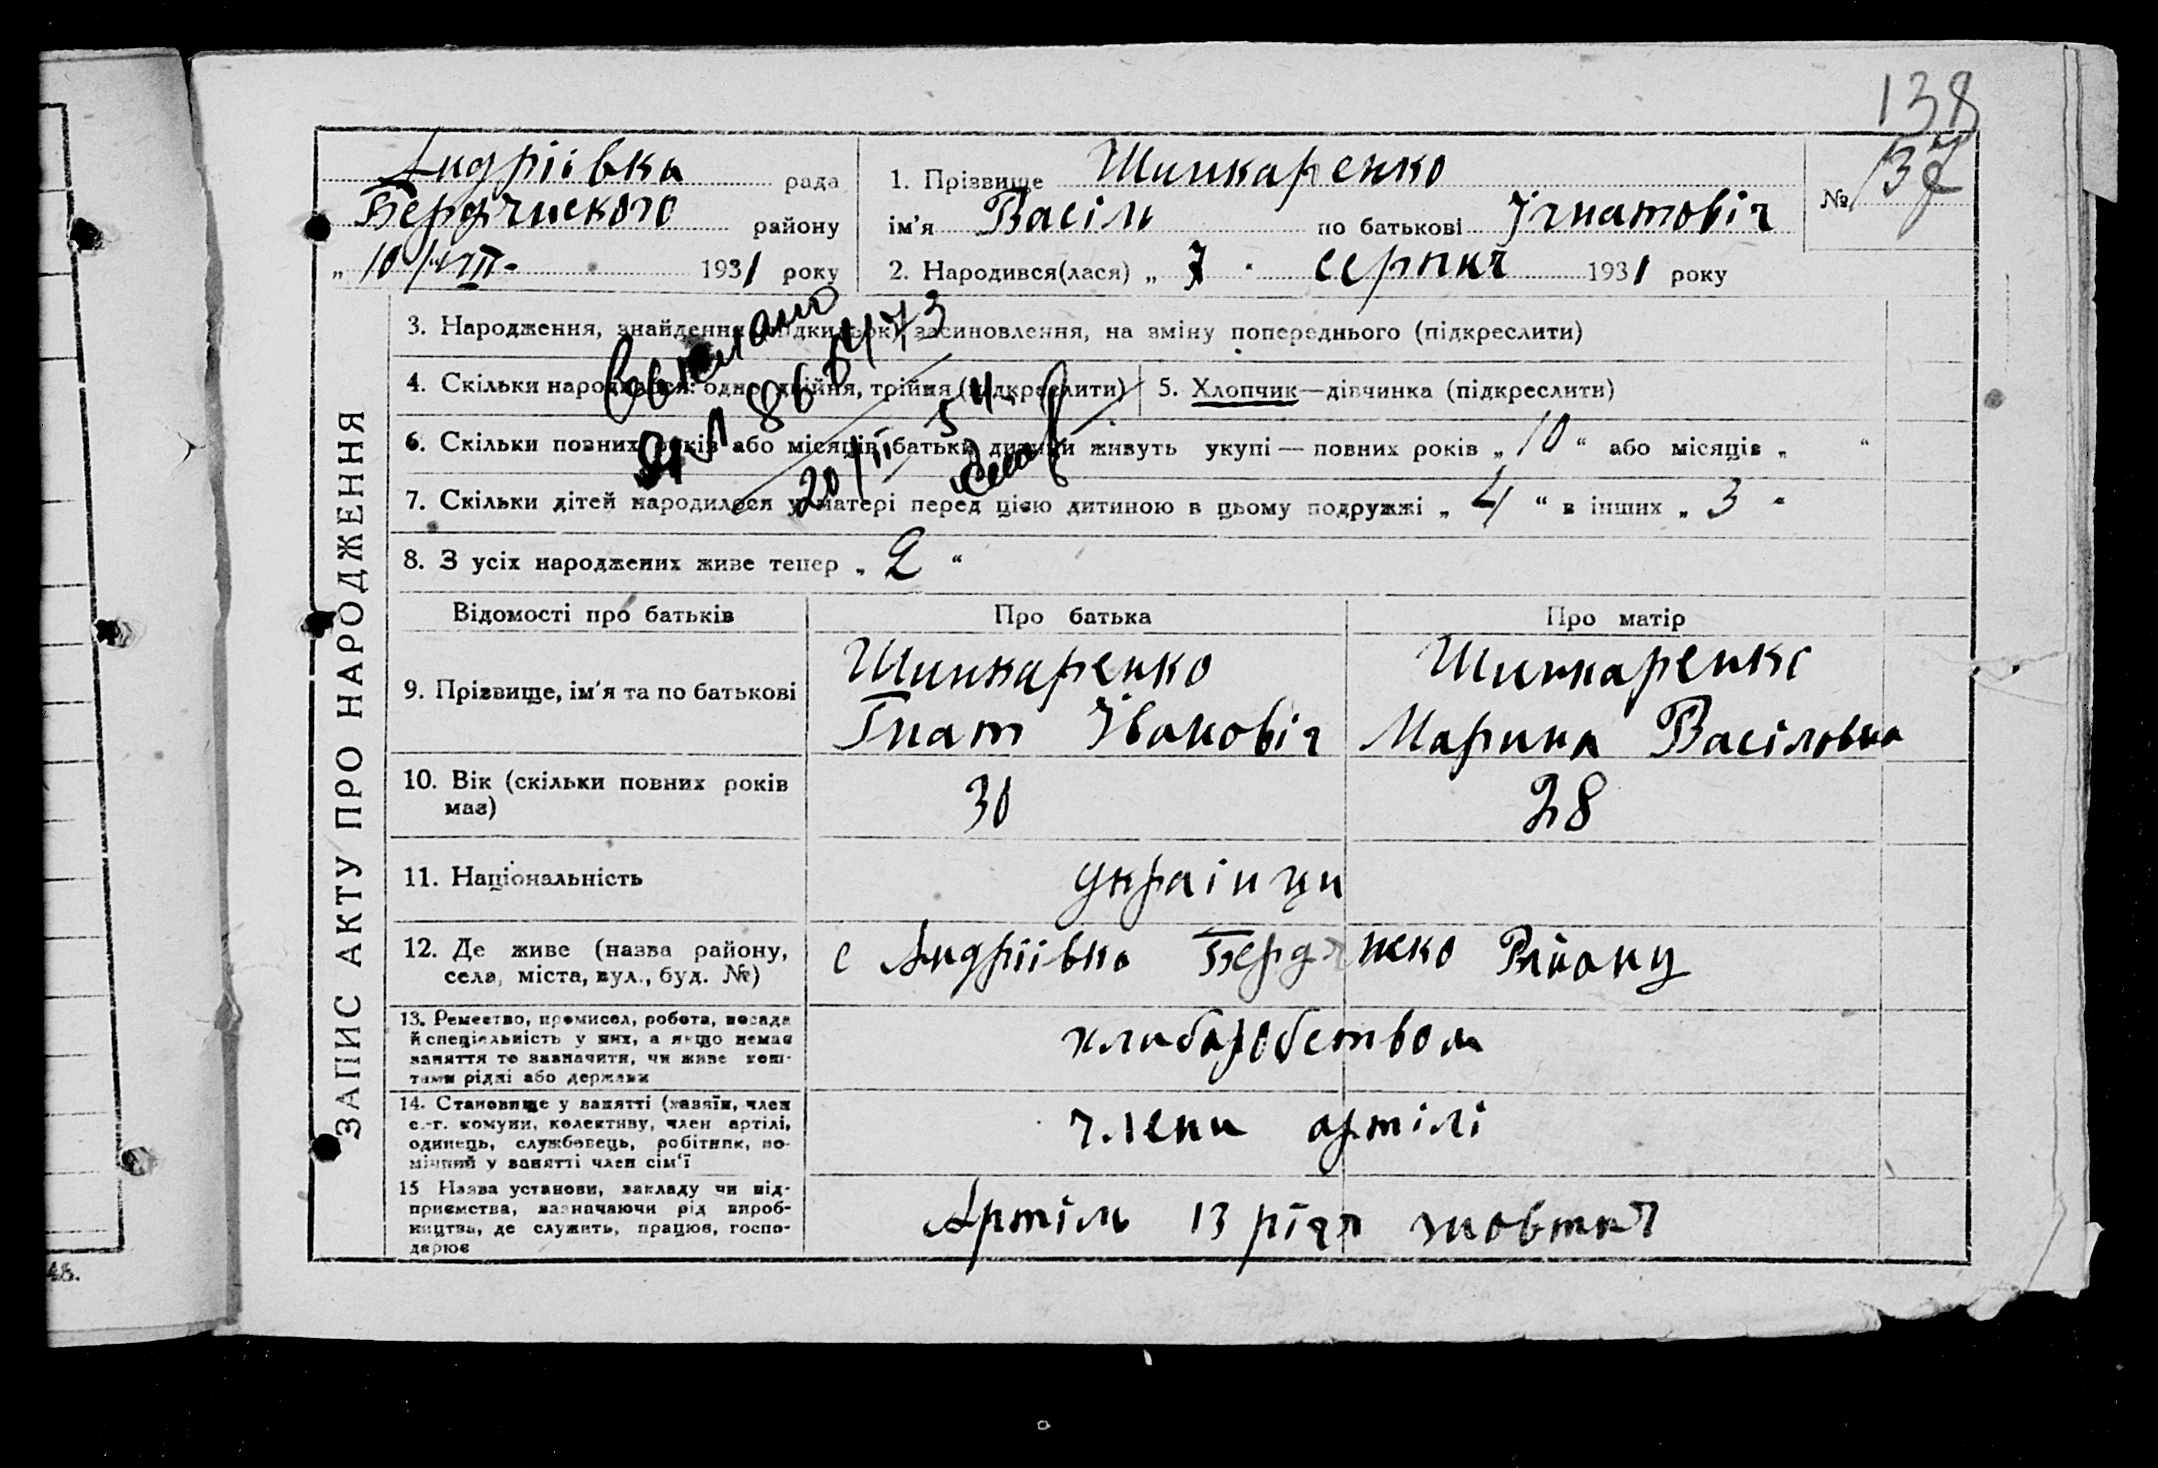 138
Андріівка рада
Бердянского району
„ 10 /VIII- 1931 року
1. Прізвище Шинкаренко
ім'я Васіль по батькові Ігнатовіч
2. Народився(лася) „ 7 " серпня 1931 року
№ 137
ЗАПИС АКТУ ПРО НАРОДЖЕННЯ
3. Народження, знайдення (підкидьок), засиновлення, на зміну попереднього (підкреслити)
4. Скільки народилося: одно, двійня, трійня (підкреслити)
5. Хлопчик—дівчинка (підкреслити)
6. Скільки повних років або місяців батьки дитини живуть укупі — повних років „ 10 “ або місяців „ “
7. Скільки дітей народилося у матері перед цією дитиною в цьому подружжі „ 4 “ в інших „ 3 “
8. З усіх народжених живе тепер „ 2 “
Відомості про батьків
Про батька
Про матір
9. Прізвище, ім'я та по батькові
Шинкаренко
Гнат Івановіч
Шинкаренко
Марина Васіловна
10. Вік (скільки повних років
має)
30
28
11. Національність
українци
12. Де живе (назва району,
села, міста, вул., буд. №)
с Андріівка Бердянско Району
13. Ремество, промисел, робота, посада
й спеціяльність у них, а якщо немає
заняття то зазначити, чи живе кош-
тами рідні або держави
хлиборобством
14. Становище у занятті (хазяїн, член
с.-г. комуни, колективу, член артілі,
одинець, службовець, робітник, по-
мічний у занятті член сім'ї
члени артілі
15 Назва установи, закладу чи під-
приємства, зазначаючи рід вироб-
ництва, де служить, працює, госпо-
дарює
Артіль 13 річя жовтня
48.